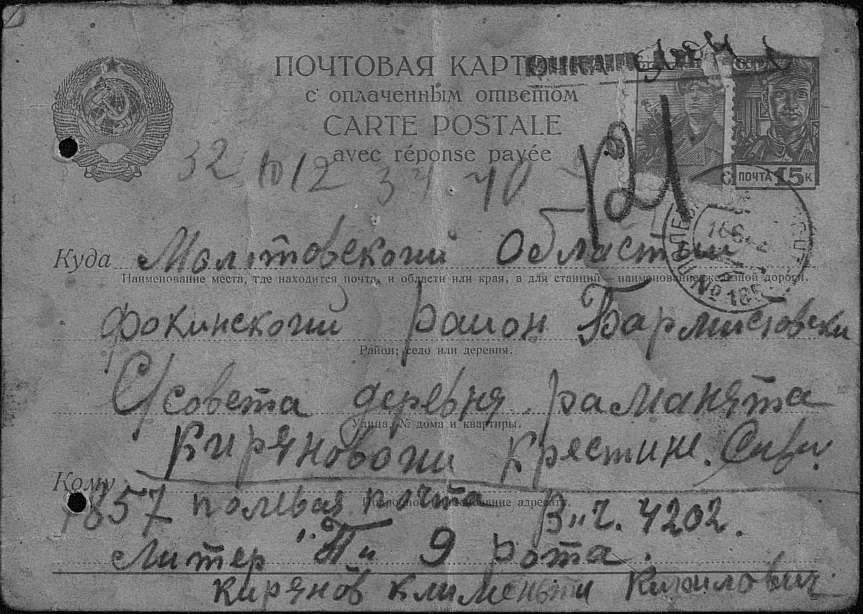 ПОЧТОВАЯ КАРТОЧКА
с оплаченным ответом
CARTE POSTALE
avec réponse payée
ПОЧТА 15 К
32 1012 34 40
121
Куда Молотовский Областьи
Наименование места, где находится почта, и области или края, а для станций – наименование железной дороги.
Фокинскогий район Бармистовски
Район, село или деревня.
С/совета деревня раманята
Улица, № дома и квартиры.
Киряновогии Крестин.
Кому
1857 полевая почта В"ч. 4202.
Литер "П" 9 рота.
Кирянов Клименьти Кирилович